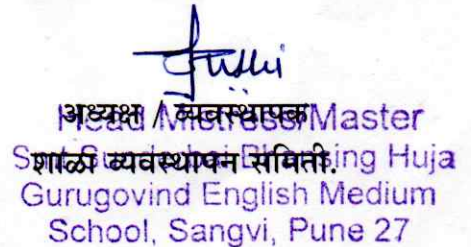 अध्यक्ष / व्यवस्थापक
Head Mistress/Master
शाळा व्यवस्थापन समिती.
Huja
Gurugovind English Medium
School, Sangvi, Pune 27